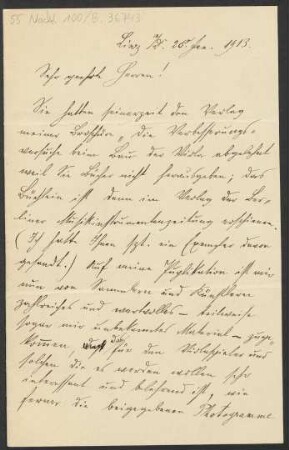 55 Nachl. 100/B, 36743
Linz /D. 26. Jan. 1913.
Sehr geehrte Herren!
Sie hatten seinerzeit den Verlag
meiner Broschüre „Die Verbesserungs-
versuche beim Bau der Viola abgelehnt
weil Sie Bücher nicht herausgeben; das
Büchlein ist dann im Verlag der Ber-
liner Musikinstrumentenzeitung erschienen.
(Ich hatte Ihnen spt. ein Exemplar davon
gesandt.) Auf meine Publikation ist mir
nun von Sammlern und Künstlern
zahlreiches und wertvolles – teilweise
sogar mir unbekanntes Material – zuge-
kommen das für den Violaspieler und
solchen die es werden wollen sehr
interessant und belehrend ist, wie
ferner die beigegebenen Photogramme